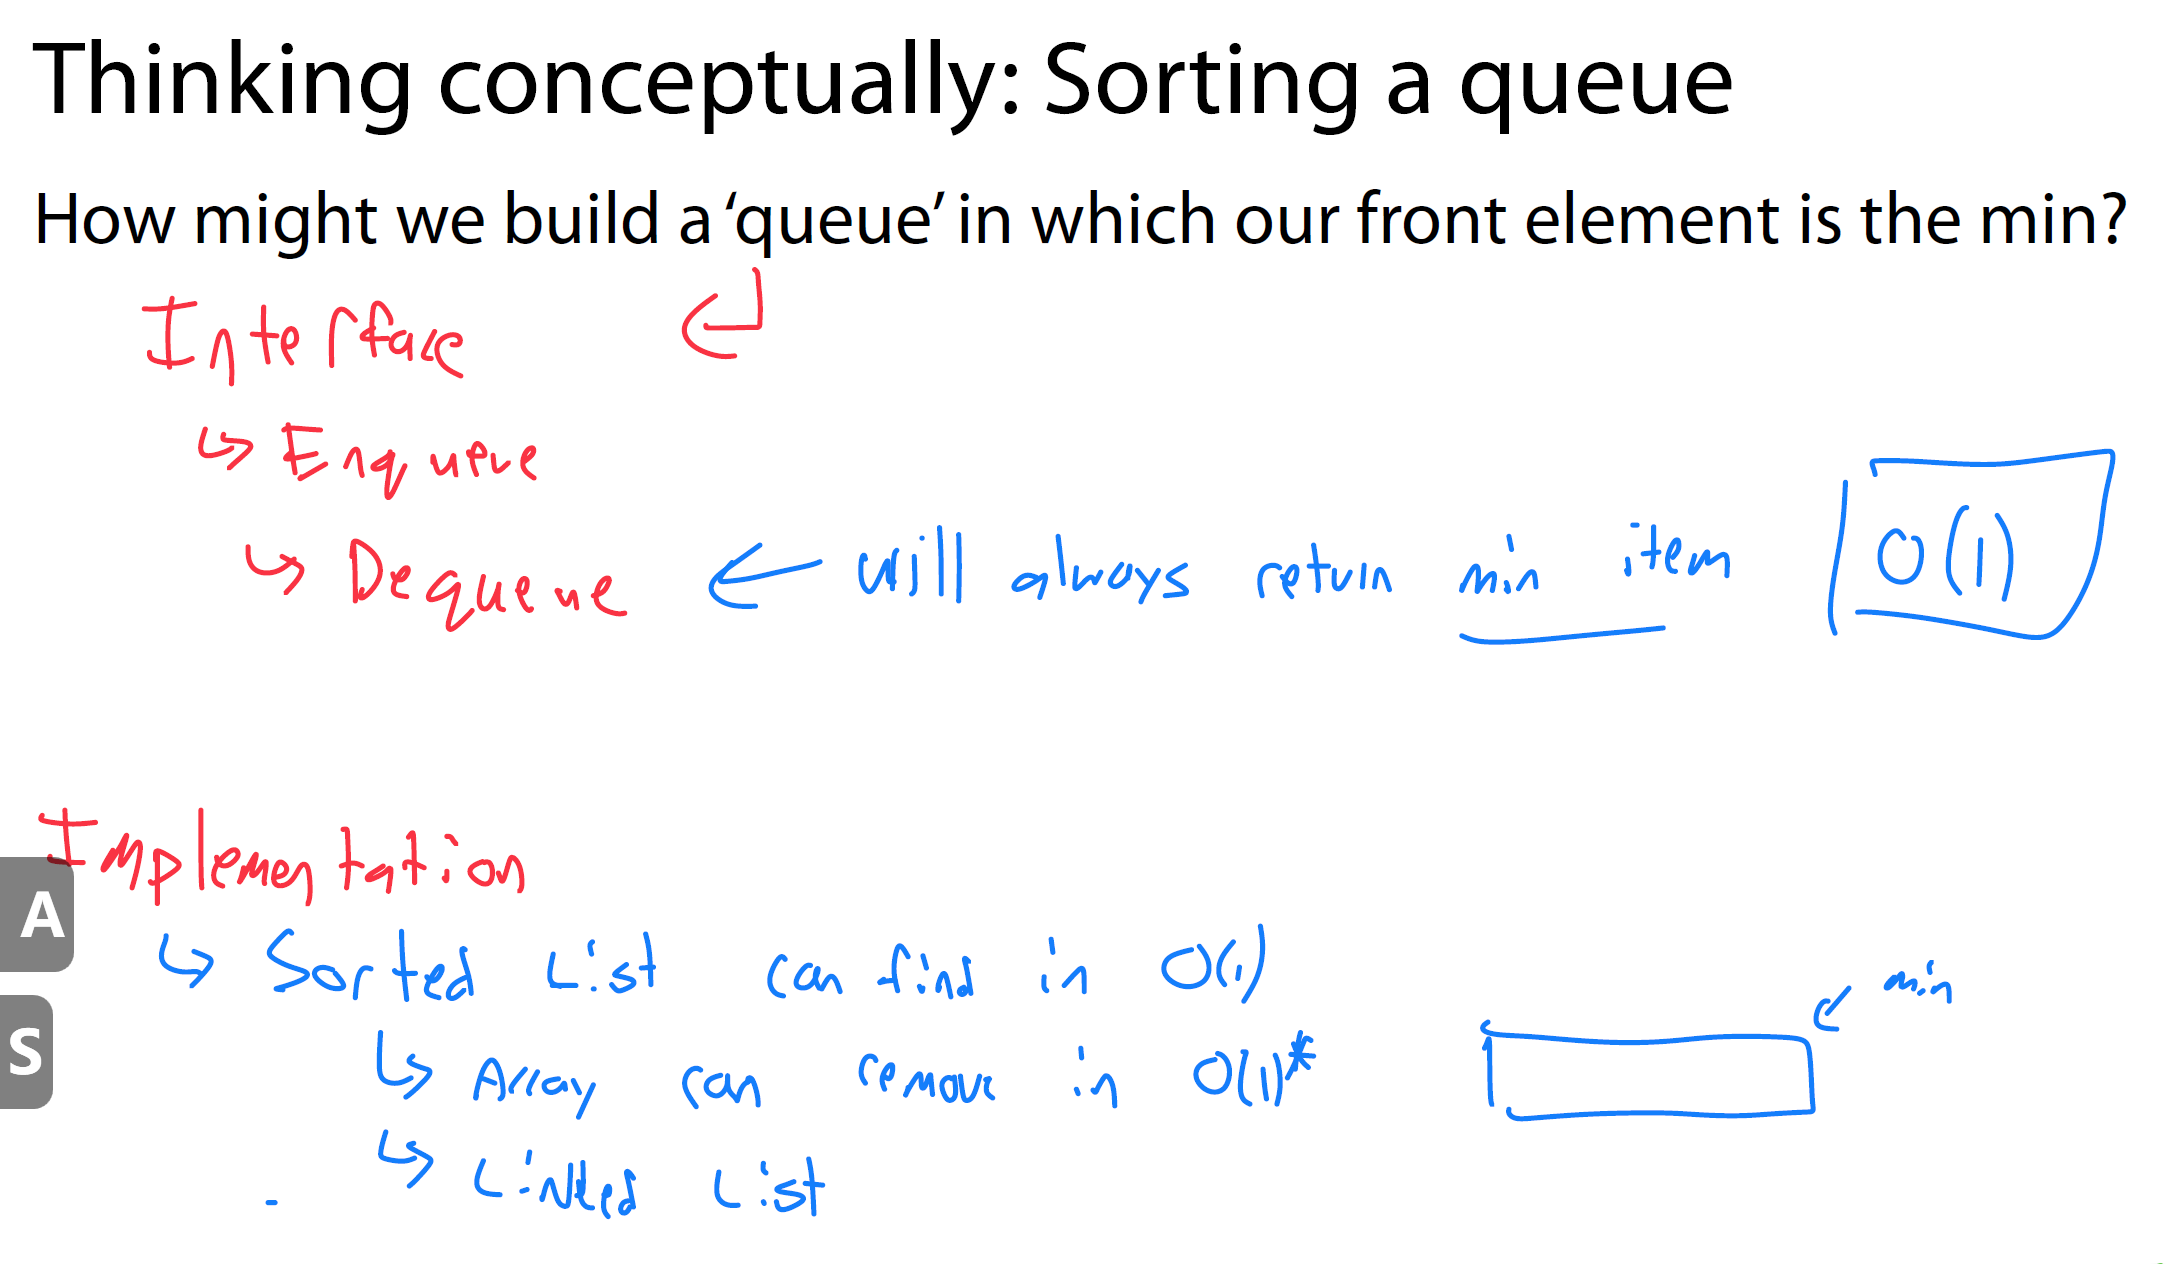 Thinking conceptually: Sorting a queue
How might we build a ‘queue’ in which our front element is the min?
Interface
↳ Enqueue
↳ Dequeue ← will always return min item O(1)
Implementation
A
↳ Sorted List can find in O(1)
min
S
↳ Array can remove in O(1)*
↳ Linked List